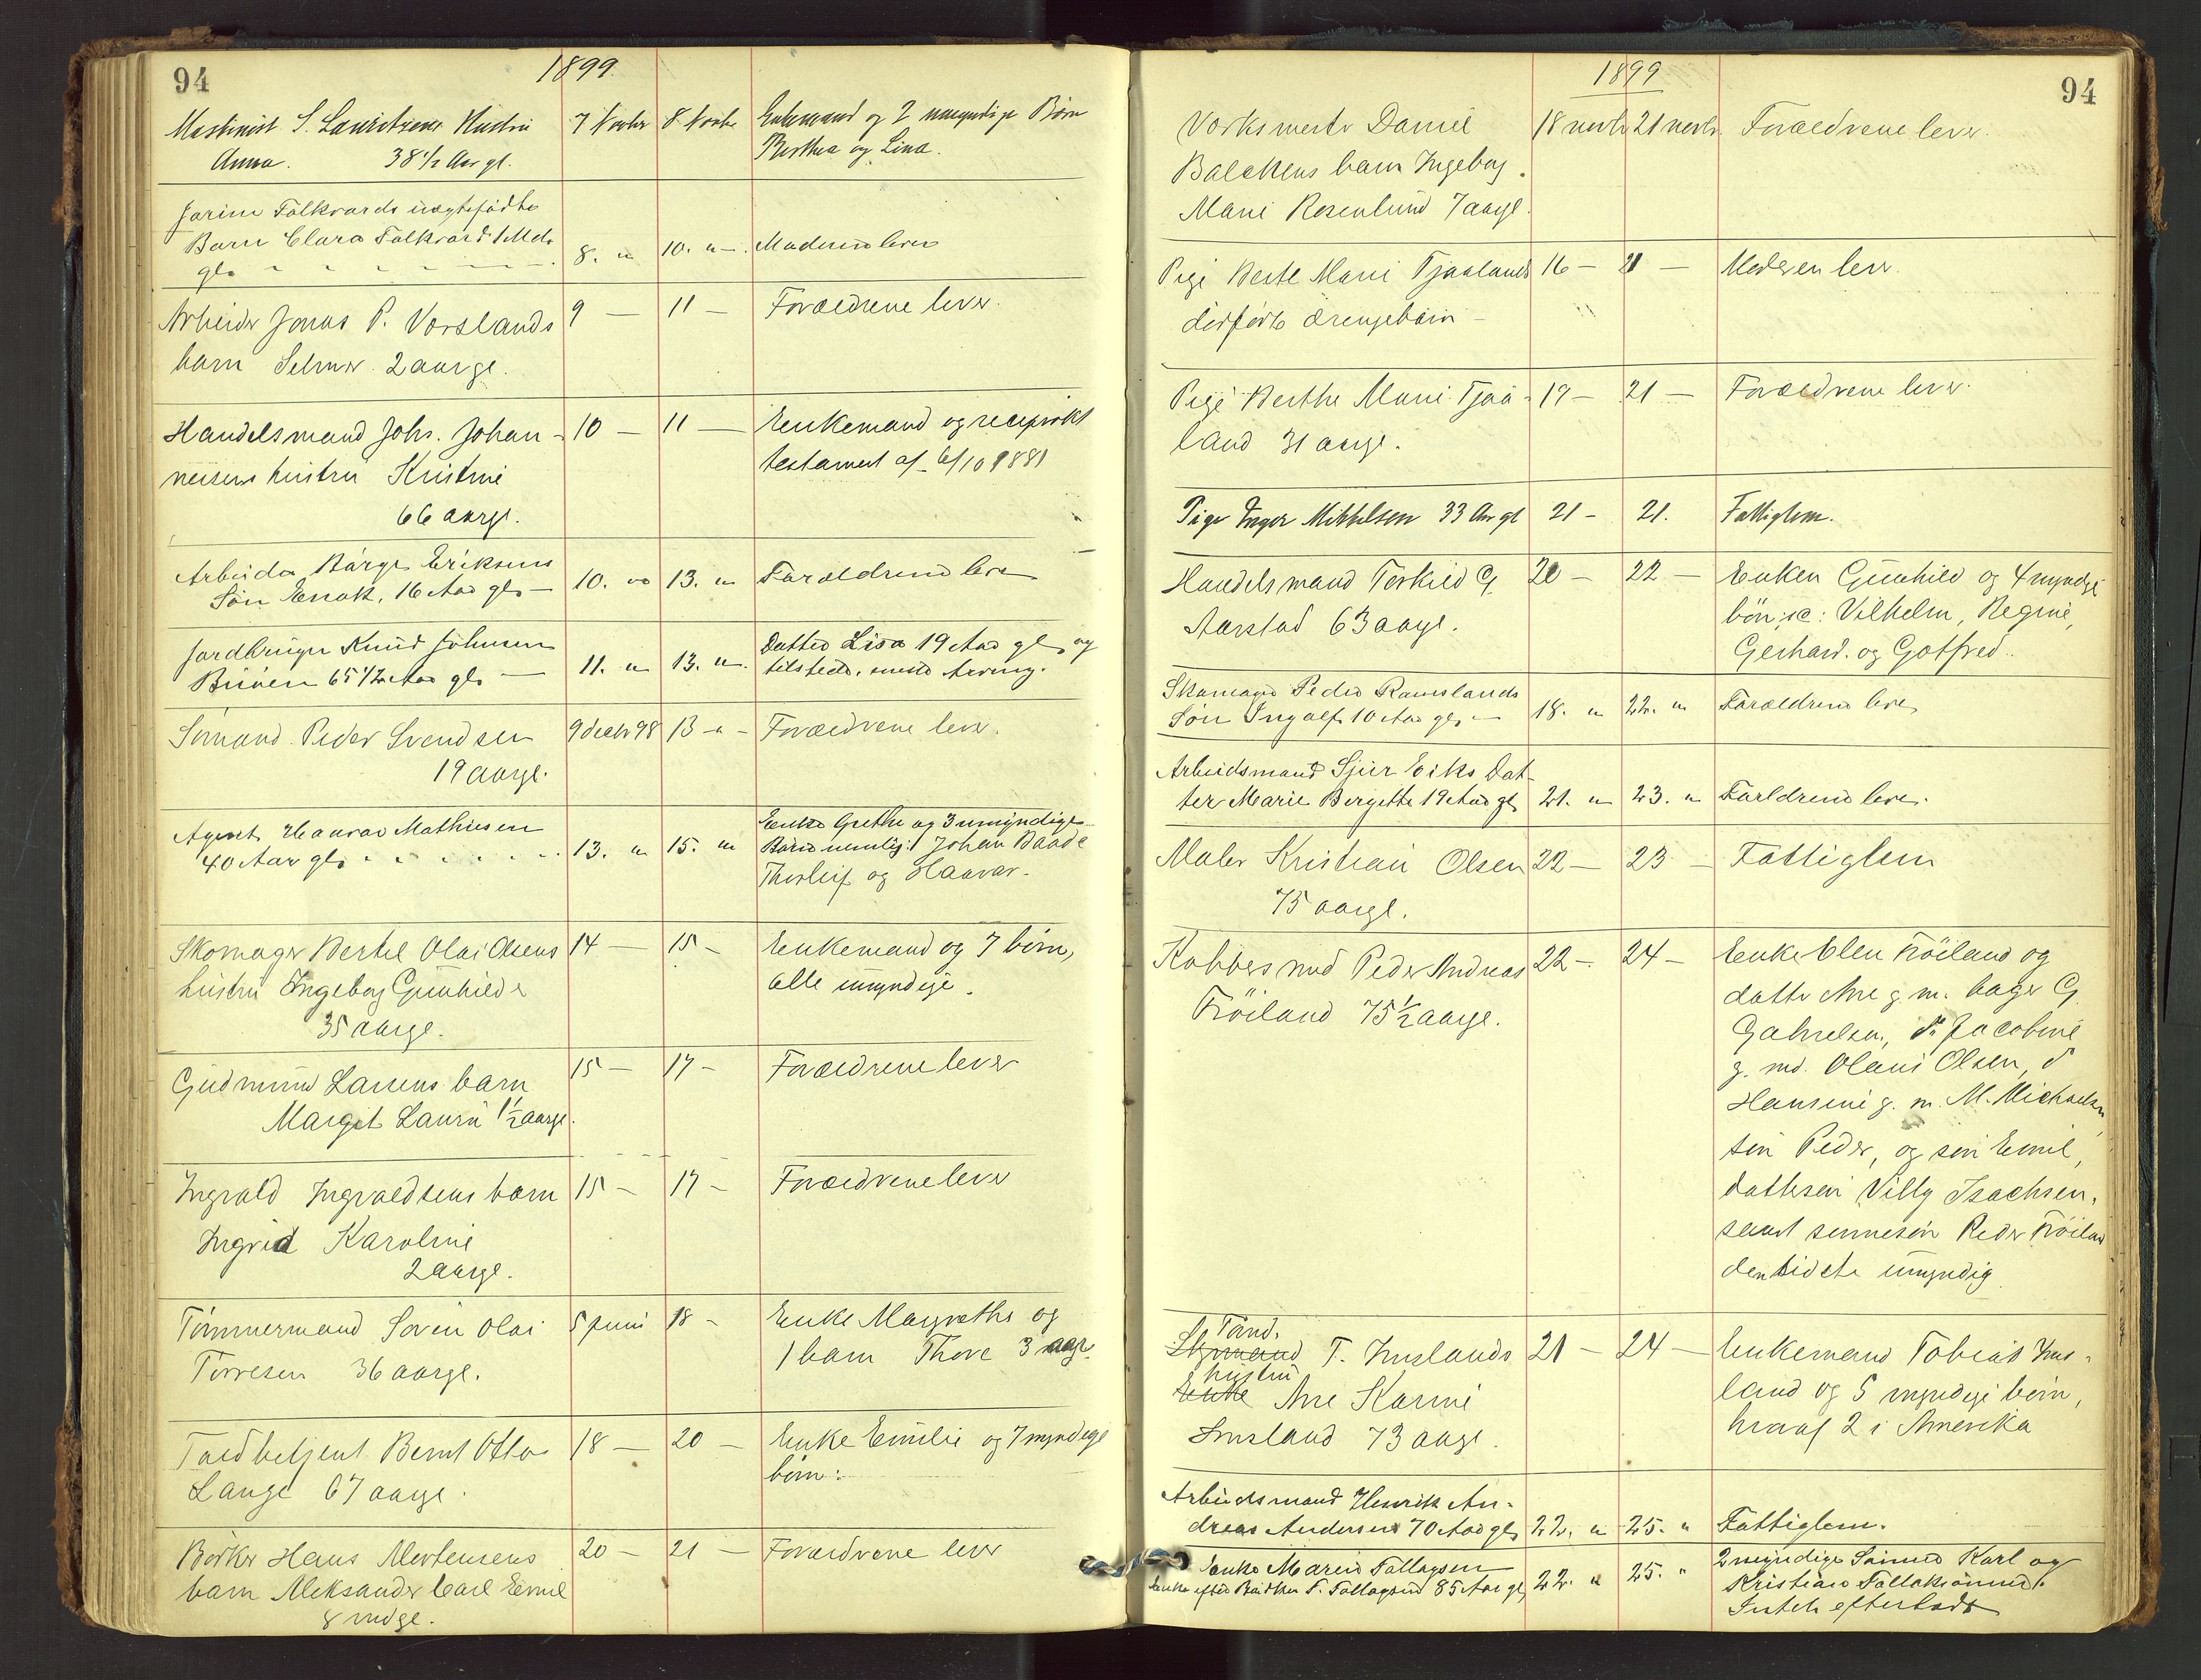 94
1899.
Maskinist S. Lauritzens Hustru 7 Novbr 8 Novbr Enkemand og 2 umyndige Børn
Anna. 38 1/2 Aar gl. Berthea og Lina.
Jorine Falkvards uægtefødte
Barn Clara Falkvard 1 Md. 8. " 10. " Moderen lever
gl.
Arbeider Jonas P. Vorslands 9 — 11 — Forældrene lever.
barn Selmer. 2 aargl.
Handelsmand Johs. Johan- 10 — 11 — Enkemand og reciprokt
nesens hustru Kristine testament af 6/10 1881
66 aargl.
Arbeider Børge Eriksens 10. " 13. " Forældrene lever
Søn Enok, 16 Aar gl.
Jordbruger Knud Johnsen 11. " 13. " Datter Lisa 19 Aar gl. og
Bruen 65 1/2 Aar gl. — tilstede.
Sømand Peder Svendsen 9 decbr 98 13 " — Forældrene lever.
19 aargl.
Agent Haavar Mathiesen 13. " 15. " Enke Grethe og 3 umyndige
40 Aar gl. Børn nemlig: Johan Baade
Thorleif og Haavar.
Skomager Bertel Olai Olsens 14 — 15 — Enkemand og 7 børn,
hustru Ingeborg Gunhilde alle umyndige.
35 aargl.
Gudmund Larsens barn 15 — 17 — Forældrene lever
Margit Laura 1 1/2 aargl.
Ingvald Ingvaldsens barn 15 — 17 — Forældrene lever
Ingrid Karoline
2 aargl.
Tømmermand Søren Olai 5 juni 18 — Enke Margrethe og
Torresen 36 aargl. 1 barn Thore 3 aar.
Toldbetjent Bernt Otto 18 — 20 — Enke Emilie og 7 myndige
Lange 67 aargl. børn:
Bødker Hans Mortensens 20 — 21 — Forældrene lever
barn Aleksander Carl Emil
8 mdgl.
1899
94
Værksmester Daniel 18 novbr 21 novbr. Forældrene lever.
Balchens barn Ingeborg
Marie Rosenlund 7 aargl.
Pige Berte Marie Tjaalands 16 — 21 — Moderen lever.
dødfødt drengebarn —
Pige Berthe Marie Tjaa- 17 — 21 — Forældrene lever.
land 31 aargl.
Pige Inger Mikkelsen 33 Aar gl 21 — 21. Fattiglem.
Handelsmand Torkild G. 20 — 22 — Enken Gunhild og 4 myndige
Aarstad 63 aargl. børn, sc: Vilhelm, Regine,
Gerhard. og Gotfred.
Skomager Peder Ramslands 18. " 22. " Forældrene lever
Søn Ingolf 10 Aar gl. —
Arbeidsmand Sjur Eiks Dat-
ter Marie Bergette 19 Aar gl. 21. " 23. " Forældrene lever.
Maler Kristian Olsen 22 — 23 — Fattiglem
75 aargl.
Kobbersmed Peder Andreas 22 — 24 — Enke Elen Frøiland og
Frøiland 75 1/2 aargl. datter Ane g. m. bager G.
Gabrielsen, d. Jacobine
g. md. Olaus Olsen, d
Hansine g. m. M. Michaelsen
søn Peder, og søn Emil,
dattersøn Villy Isachsen,
samt sønnesøn Peder Frøiland
den sidste umyndig
Tømd.
Skomand T. Imslands 21 — 24 — Enkemand Tobias Ims-
hustru
Enke Ane Karine land og 5 myndige børn,
Imsland 73 aargl. hvoraf 2 i Amerika
Arbeidsmand Henrik An-
dreas Andersen 70 Aar gl. 22. " 25. " Fattiglem.
Enke Maren Tollagsen 22. " 25. " 2 myndige Sønner Karl og
Enke efter Bødker T. Tollagsen 85 Aar gl. Kristian Tollaksønner.
Intet efterladt